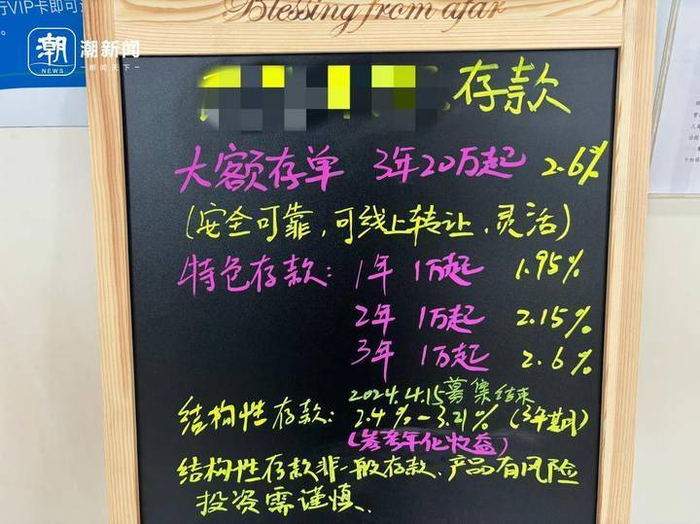 行VIP卡即可
潮 潮新闻
NEWS
Blessing from afar
存款
大额存单 3年20万起 2.6%
(安全可靠,可线上转让、灵活)
特色存款: 1年 1万起 1.95%
2年 1万起 2.15%
3年 1万起 2.6%
2024.4.15募集结束
结构性存款: 2.4%-3.21% (3年期)
(参考年化收益)
结构性存款非一般存款、产品有风险
投资需谨慎、